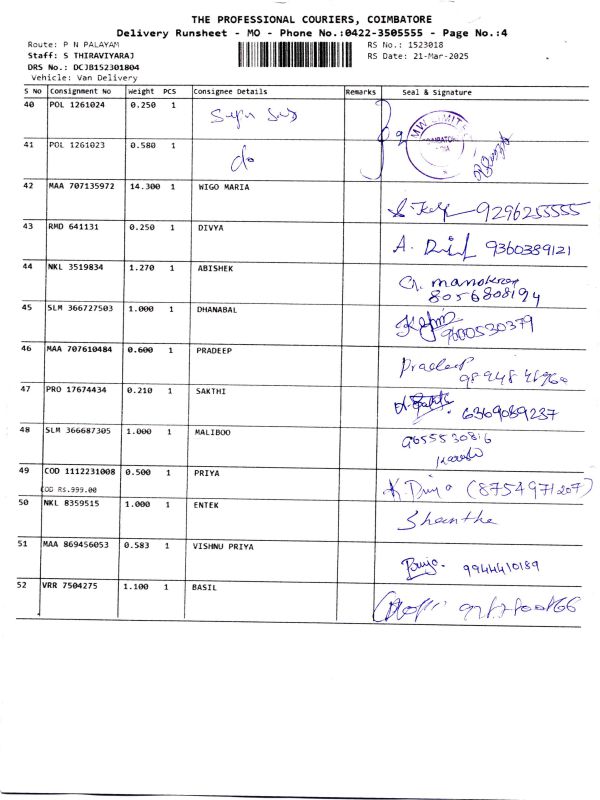 THE PROFESSIONAL COURIERS, COIMBATORE
Delivery Runsheet - MO - Phone No.:0422-3505555 - Page No.:4
Route: P N PALAYAM RS No.: 1523018
Staff: S THIRAVIYARAJ RS Date: 21-Mar-2025
DRS No.: DCJB152301804
Vehicle: Van Delivery
S No Consignment No Weight PCS Consignee Details Remarks Seal & Signature
40 POL 1261024 0.250 1
41 POL 1261023 0.580 1 do
42 MAA 707135972 14.300 1 WIGO MARIA 9296255555
43 RMD 641131 0.250 1 DIVYA A. 9360389121
44 NKL 3519834 1.270 1 ABISHEK
8056808194
45 SLM 366727503 1.000 1 DHANABAL 9600530379
46 MAA 707610484 0.600 1 PRADEEP Pradeep
47 PRO 17674434 0.210 1 SAKTHI 6369089237
48 SLM 366687305 1.000 1 MALIBOO 9655530816
49 COD 1112231008 0.500 1 PRIYA K. Priya (8754971207)
COD RS.999.00
50 NKL 8359515 1.000 1 ENTEK Shantha
51 MAA 869456053 0.583 1 VISHNU PRIYA 9944410189
52 VRR 7504275 1.100 1 BASIL